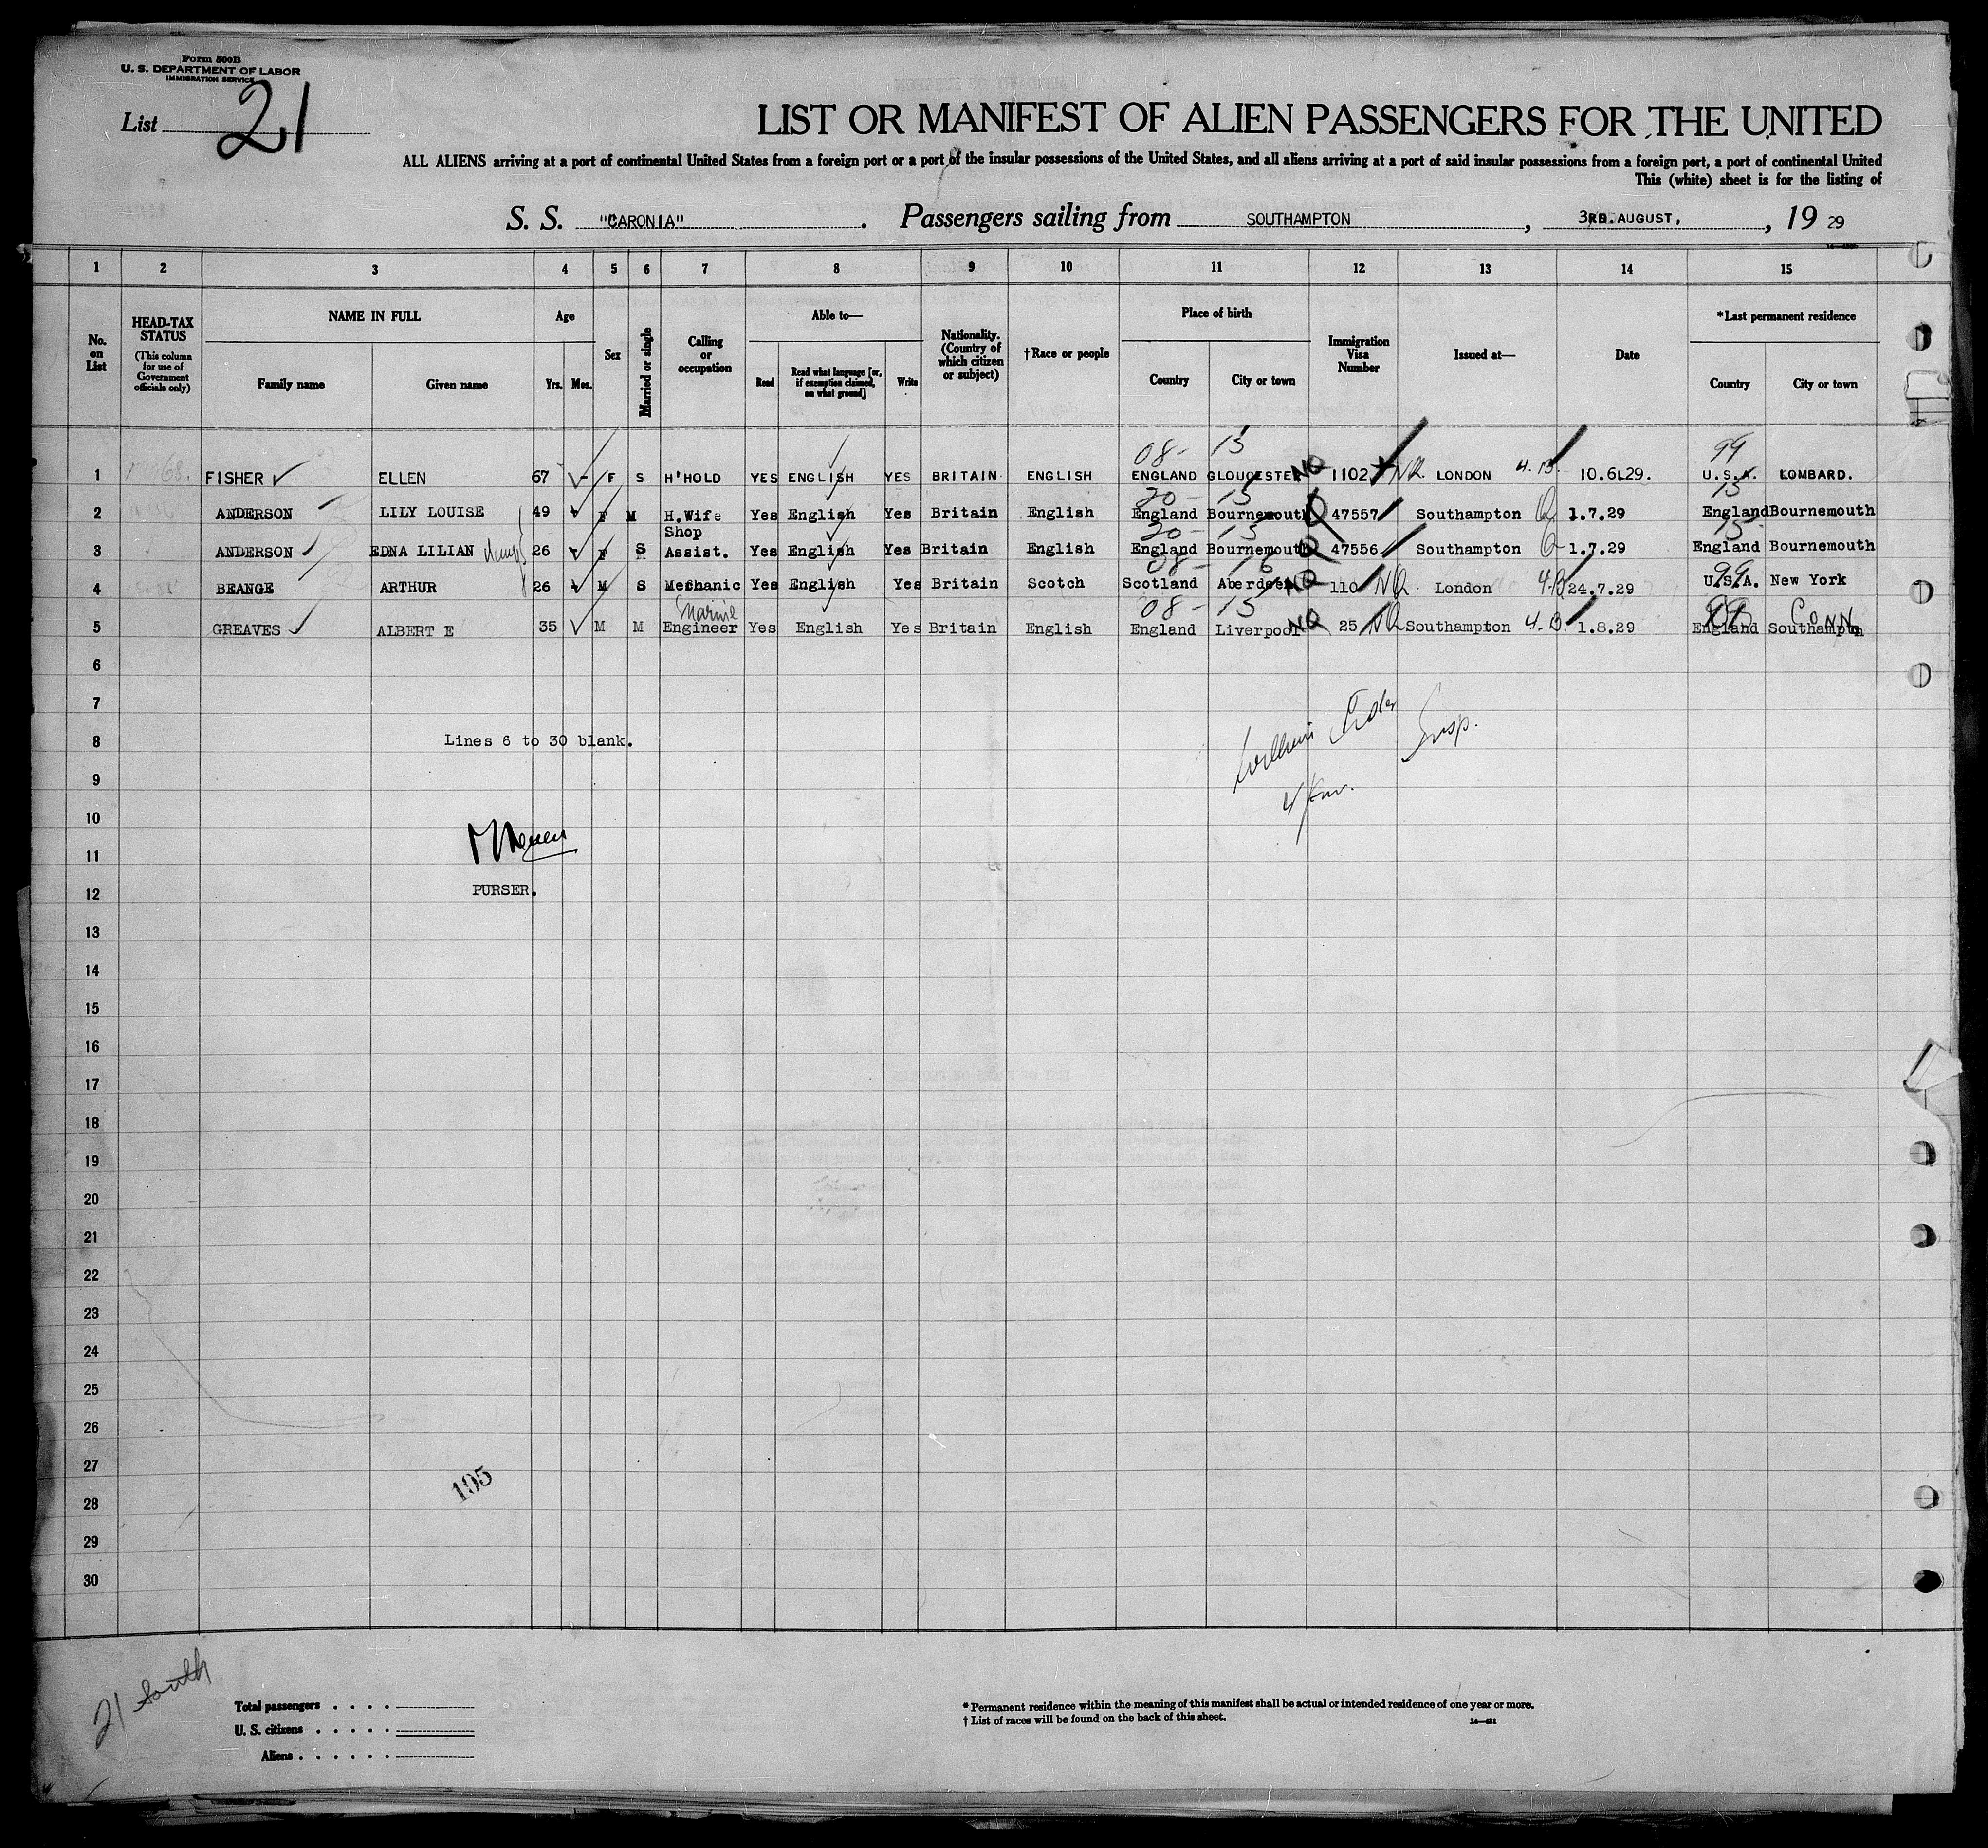 Form 500B
U. S. DEPARTMENT OF LABOR
IMMIGRATION SERVICE
List 21
LIST OR MANIFEST OF ALIEN PASSENGERS FOR THE UNITED
ALL ALIENS arriving at a port of continental United States from a foreign port or a port of the insular possessions of the United States, and all aliens arriving at a port of said insular possessions from a foreign port, a port of continental United
This (white) sheet is for the listing of
S. S. "CARONIA". Passengers sailing from SOUTHAMPTON, 3RD. AUGUST, , 19 29
1 2 3 4 5 6 7 8 9 10 11 12 13 14 15
No. on List
HEAD-TAX STATUS (This column for use of Government officials only)
NAME IN FULL
Family name
Given name
Age
Yrs. Mos.
Sex
Married or single
Calling or occupation
Able to—
Read
Read what language [or, if exemption claimed, on what ground]
Write
Nationality. (Country of which citizen or subject)
†Race or people
Place of birth
Country
City or town
Immigration Visa Number
Issued at—
Date
*Last permanent residence
Country
City or town
08- 15 99
1 FISHER ELLEN 67 F S H'HOLD YES ENGLISH YES BRITAIN ENGLISH ENGLAND GLOUCESTER NQ 1102 NQ LONDON 4.B. 10.6.29. U.S.A. LOMBARD.
20- 15 15
2 ANDERSON LILY LOUISE 49 F M H.Wife Yes English Yes Britain English England Bournemouth Q 47557 Southampton Q 1.7.29 England Bournemouth
20- 15 15
3 ANDERSON EDNA LILIAN 26 F S Shop Assist. Yes English Yes Britain English England Bournemouth Q 47556 Southampton Q 1.7.29 England Bournemouth
08- 16 99
4 BEANGE ARTHUR 26 M S Mechanic Yes English Yes Britain Scotch Scotland Aberdeen NQ 110 NQ London 4.B 24.7.29 U.S.A. New York
Marine 08- 15 99 CONN
5 GREAVES ALBERT E 35 M M Engineer Yes English Yes Britain English England Liverpool NQ 25 NQ Southampton 4.B. 1.8.29 England Southampton
6
7
8 Lines 6 to 30 blank.
Insp.
9
10
11
12 PURSER.
13
14
15
16
17
18
19
20
21
22
23
24
25
26
27
105
28
29
30
21 South
Total passengers
U. S. citizens
Aliens
* Permanent residence within the meaning of this manifest shall be actual or intended residence of one year or more.
† List of races will be found on the back of this sheet.